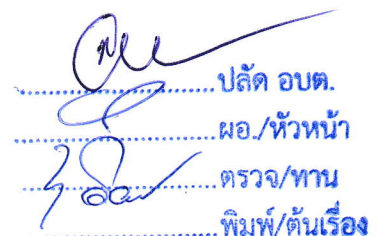 ปลัด อบต.
ผอ./หัวหน้า
ตรวจ/ทาน
พิมพ์/ต้นเรื่อง